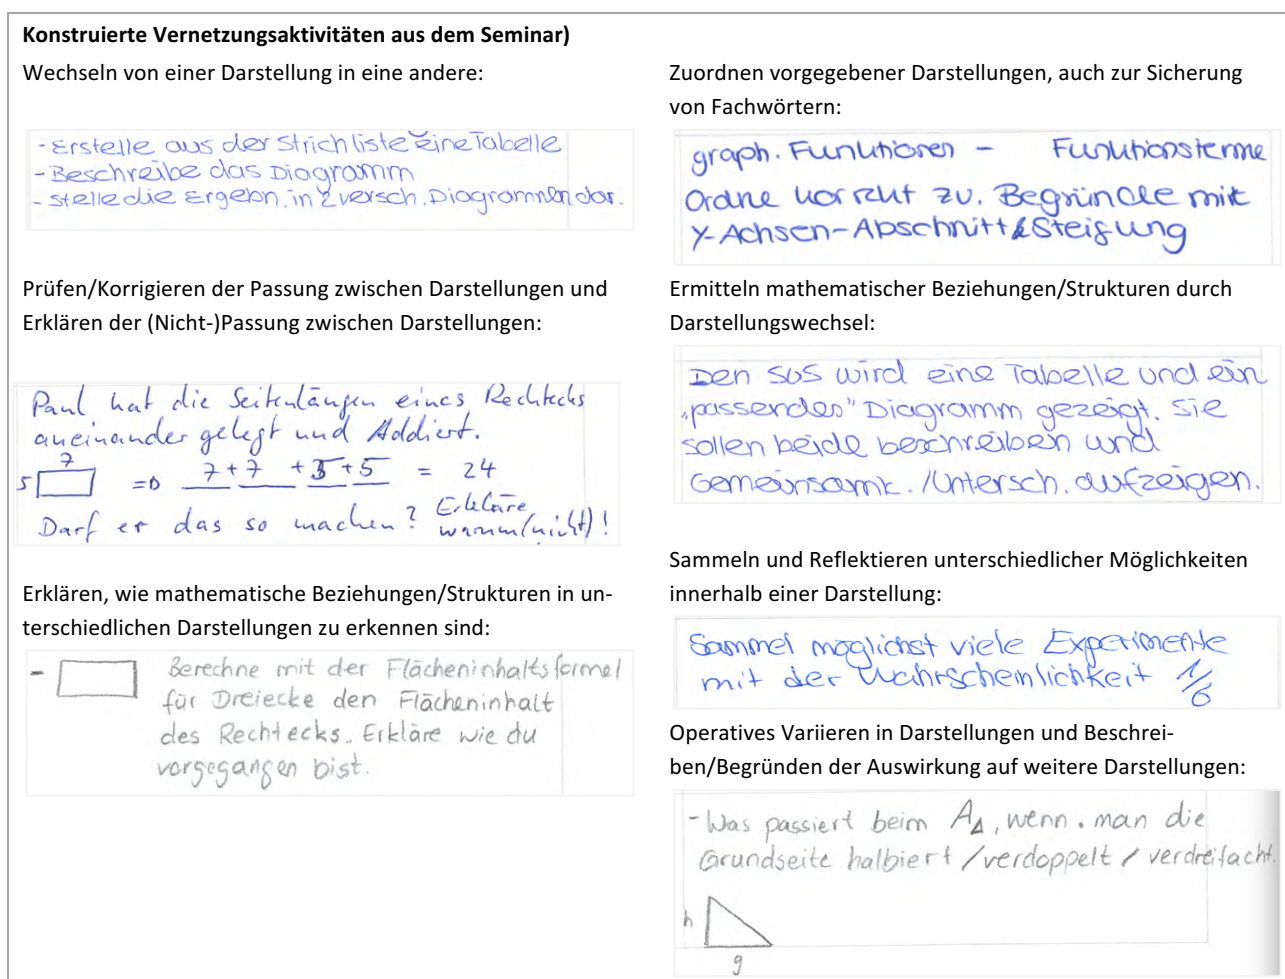 Konstruierte Vernetzungsaktivitäten aus dem Seminar)
Wechseln von einer Darstellung in eine andere:
- Erstelle aus der Strichliste eine Tabelle
- Beschreibe das Diagramm
- stelle die Ergebn. in 2 versch. Diagrammen dar.
Prüfen/Korrigieren der Passung zwischen Darstellungen und
Erklären der (Nicht-)Passung zwischen Darstellungen:
Paul hat die Seitenlängen eines Rechtecks
aneinander gelegt und Addiert.
7
5 => 7+7 +5+5 = 24
Darf er das so machen? Erkläre
warum(nicht)!
Erklären, wie mathematische Beziehungen/Strukturen in un-
terschiedlichen Darstellungen zu erkennen sind:
- Berechne mit der Flächeninhaltsformel
für Dreiecke den Flächeninhalt
des Rechtecks. Erkläre wie du
vorgegangen bist.
Zuordnen vorgegebener Darstellungen, auch zur Sicherung
von Fachwörtern:
graph. Funktionen - Funktionsterme
Ordne korrekt zu. Begründe mit
Y-Achsen-Abschnitt & Steigung
Ermitteln mathematischer Beziehungen/Strukturen durch
Darstellungswechsel:
Den SuS wird eine Tabelle und ein
„passendes" Diagramm gezeigt. Sie
sollen beide beschreiben und
Gemeinsamk./Untersch. aufzeigen.
Sammeln und Reflektieren unterschiedlicher Möglichkeiten
innerhalb einer Darstellung:
Sammel möglichst viele Experimente
mit der Wahrscheinlichkeit 1/6
Operatives Variieren in Darstellungen und Beschrei-
ben/Begründen der Auswirkung auf weitere Darstellungen:
- Was passiert beim A△, wenn man die
Grundseite halbiert / verdoppelt / verdreifacht.
h
g